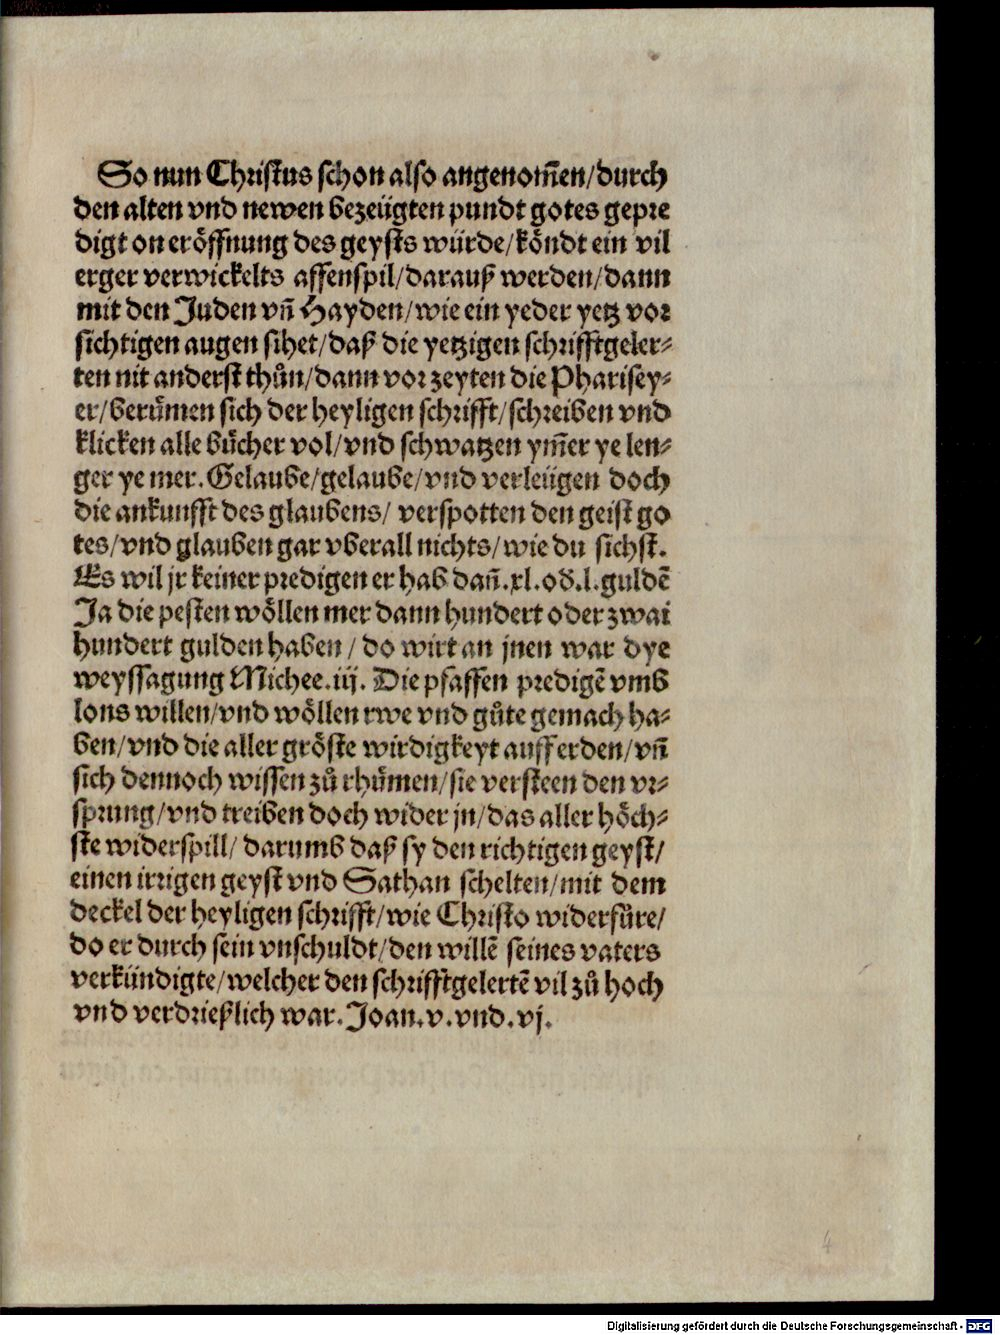 So nun Christus schon also angenom̃en/durch
den alten vnd newen bezeügten pundt gotes gepre
digt on eröffnung des geysts würde/köndt ein vil
erger verwickelts affenspil/darauß werden/dann
mit den Juden vñ Hayden/wie ein yeder yetz vor
sichtigen augen sihet/daß die yetzigen schrifftgeler⸗
ten nit anderst thůn/dann vor zeyten die Pharisey⸗
er/berůmen sich der heyligen schrifft/schreiben vnd
klicken alle bůcher vol/vnd schwatzen ym̃er ye len⸗
ger ye mer. Gelaube/gelaube/vnd verleügen doch
die ankunfft des glaubens/ verspotten den geist go
tes/vnd glauben gar vberall nichts/wie du sichst.
Es wil jr keiner predigen er hab dañ.xl.oď.l.guldẽ
Ja die pesten wöllen mer dann hundert oder zwai
hundert gulden haben/ do wirt an jnen war dye
weyssagung Michee.iij. Die pfaffen predigẽ vmb
lons willen/vnd wöllen rwe vnd gůte gemach ha⸗
ben/vnd die aller gröste wirdigkeyt aufferden/vñ
sich dennoch wissen zů rhůmen/sie versteen den vr⸗
sprung/vnd treiben doch wider jn/das aller höch⸗
ste widerspill/ darumb daß sy den richtigen geyst/
einen irrigen geyst vnd Sathan schelten/mit dem
deckel der heyligen schrifft/wie Christo widerfůre/
do er durch sein vnschuldt/den willẽ seines vaters
verkündigte/welcher den schrifftgelertẽ vil zů hoch
vnd verdrießlich war. Joan.v.vnd.vj.
4
Digitalisierung gefördert durch die Deutsche Forschungsgemeinschaft - DFG